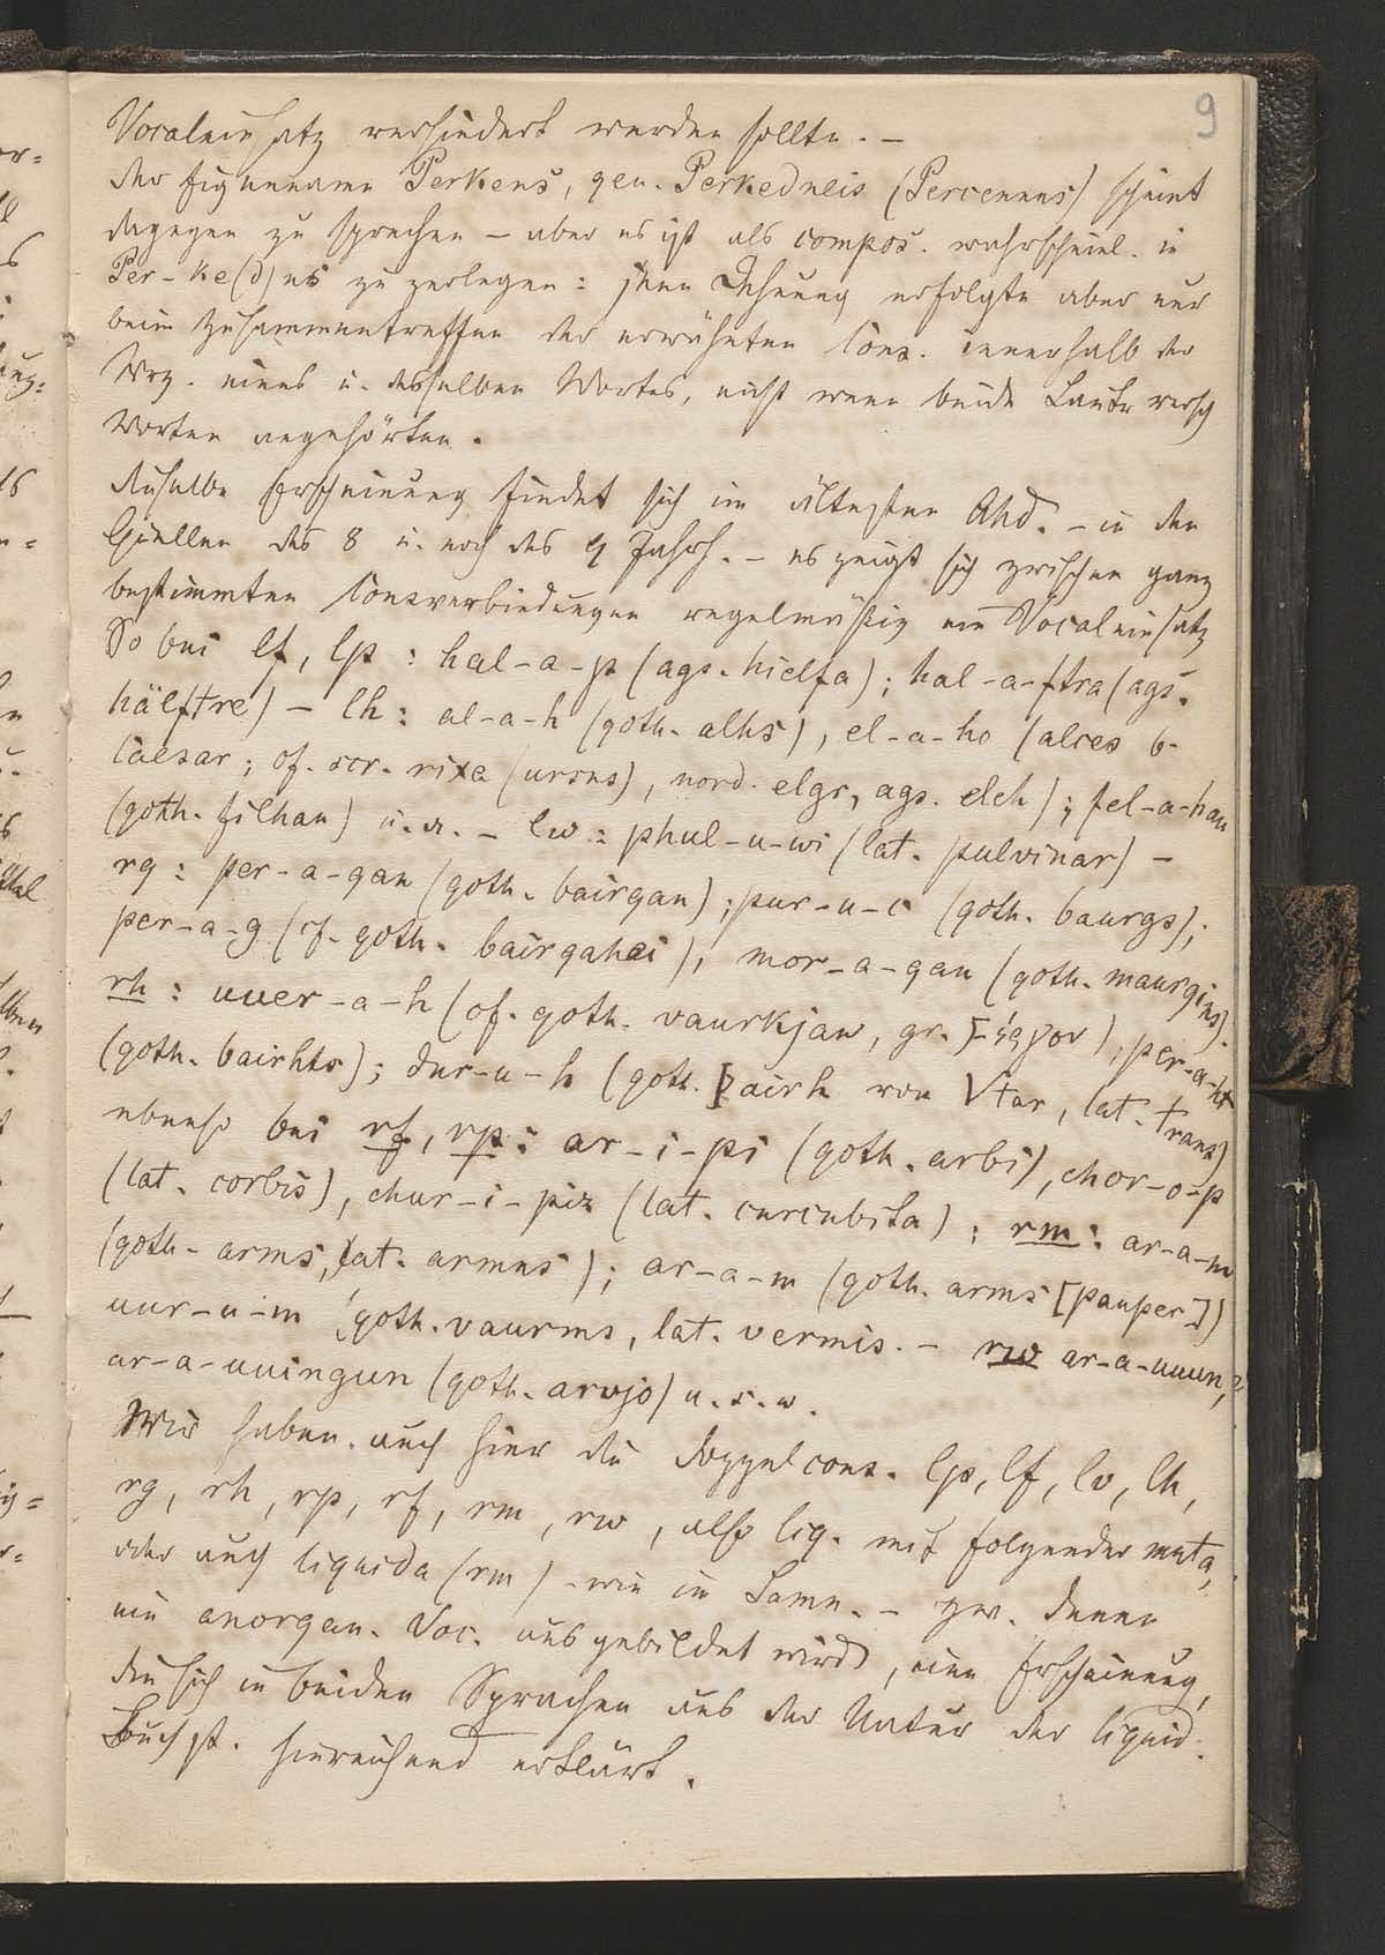 9
Vocaleinsatz verhindert werden sollte. –
der Eigenname Perkens, gen. Perkedneis (Percennus) scheint
dagegen zu sprechen – aber es ist als compos. wahrscheinl. in
Per-ke(d)nes zu zerlegen: jene Dehnung erfolgte aber nur
beim Zusammentreffen der erwähnten Cons. innerhalb der
Wrz. eines u. desselben Wortes, nicht wenn beide Laute versch
Worten angehörten.
dieselbe Erscheinung findet sich im ältesten Ahd. – in den
Quellen des 8 u. noch des 9 Jahrh. – es zeigt sich zwischen ganz
bestimmten Consverbindungen regelmäßig ein Vocaleinsatz
So bei lf, lp: hal-a-p (ags. hielfa); hal-a-ftra (ags.
hälftre) – lh: al-a-h (goth. alhs), el-a-ho (alces b.
Caesar; cf. scr. rixa (ursus), nord. elgr, ags. elch); fel-a-han
(goth. filhan) u. a. – lw: phul-u-wi (lat. pulvinar) –
rg: per-a-gan (goth. bairgan); pur-u-c (goth. baurgs);
per-a-g (cf. goth. bairgahei), mor-a-gan (goth. maurgins).
rh: uuer-a-h (cf. goth. vaurkjan, gr. Ϝέργον); per-a-ht
(goth. bairhts); dur-u-h (goth. þairh von √tar, lat. trans)
ebenso bei rf, rp: ar-i-pi (goth. arbi), chor-o-p
(lat. corbis), chur-i-piz (lat. curcubita); rm: ar-a-m
(goth. arms, lat. armus); ar-a-m (goth. arms [pauper])
uur-u-m (goth. vaurms, lat. vermis. – rw ar-a-uuun,
ar-a-uuingun (goth. arvjo) u. s. w.
Wir haben auch hier die doppelcons. lp, lf, lv, lh,
rg, rh, rp, rf, rm, rw, also liq. mit folgender muta,
oder auch liquida (rm) – wie im Samn. – zw. denen
ein anorgan. Voc. ausgebildet wird, eine Erscheinung,
die sich in beiden Sprachen aus der Natur der liquid.
Buchst. hinreichend erklärt.